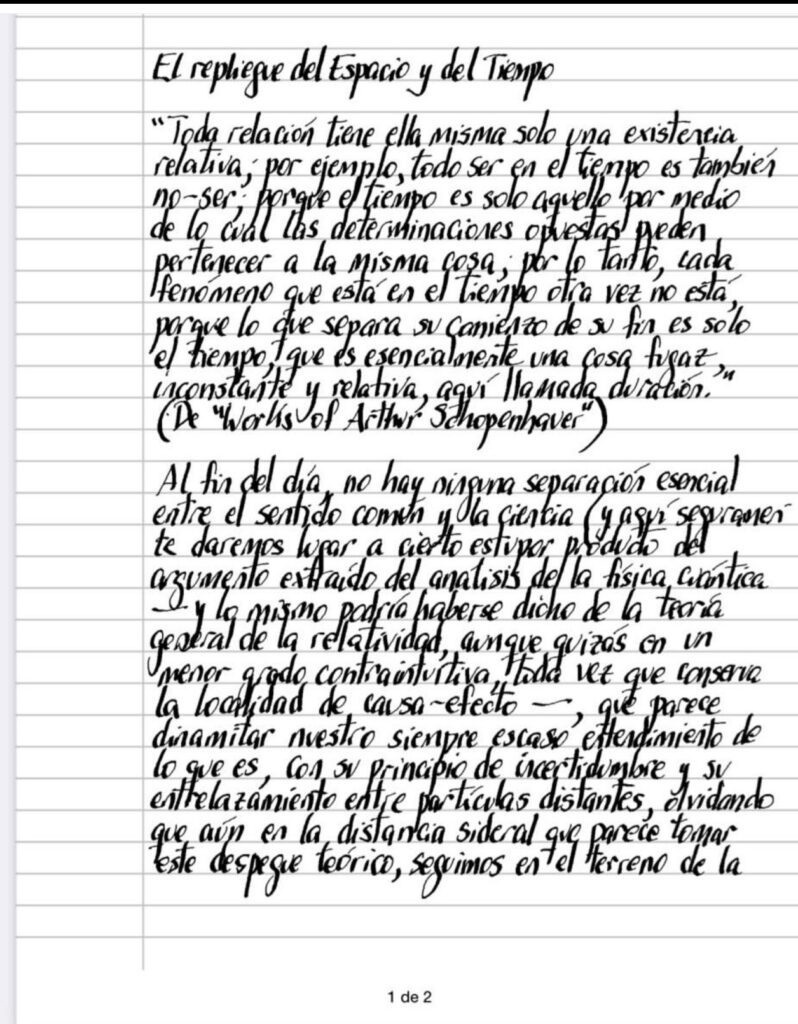 El repliegue del Espacio y del Tiempo
"Toda relación tiene ella misma solo una existencia
relativa; por ejemplo, todo ser en el tiempo es también
no-ser; porque el tiempo es solo aquello por medio
de lo cual las determinaciones opuestas pueden
pertenecer a la misma cosa; por lo tanto, cada
fenómeno que está en el tiempo otra vez no está,
porque lo que separa su comienzo de su fin es solo
el tiempo, que es esencialmente una cosa fugaz,
inconstante y relativa, aquí llamada duración."
(De "Works of Arthur Schopenhaver")
Al fin del día, no hay ninguna separación esencial
entre el sentido común y la ciencia (y aquí seguramen
te daremos lugar a cierto estupor producto del
argumento extraído del analisis de la física cuántica
— y lo mismo podría haberse dicho de la teoría
general de la relatividad, aunque quizás en un
menor grado contraintuitiva, toda vez que conserva
la localidad de causa-efecto —, que parece
dinamitar nuestro siempre escaso entendimiento de
lo que es, con su principio de incertidumbre y su
entrelazamiento entre partículas distantes, olvidando
que aún en la distancia sideral que parece tomar
este despegue teórico, seguimos en el terreno de la
1 de 2